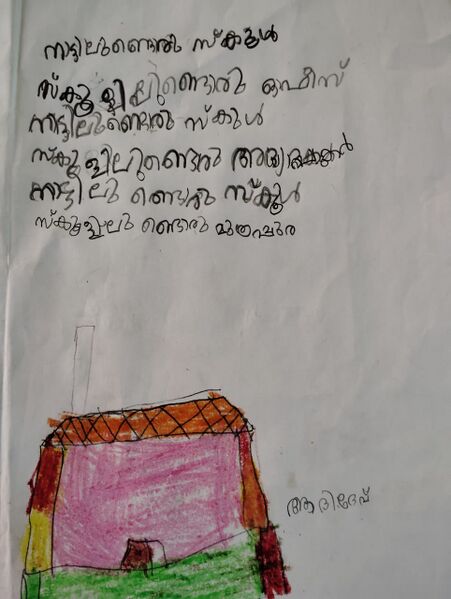 നാട്ടിലുണ്ടൊരു സ്കൂൾ
സ്കൂളിലുണ്ടൊരു ഓഫീസ്
നാട്ടിലുണ്ടൊരു സ്കൂൾ
സ്കൂളിലുണ്ടൊരു അദ്ധ്യാപകർ
നാട്ടിലു ണ്ടൊരു സ്കൂൾ
സ്കൂളിലു ണ്ടൊരു മൂത്രപ്പുര
ആദിദേവ്